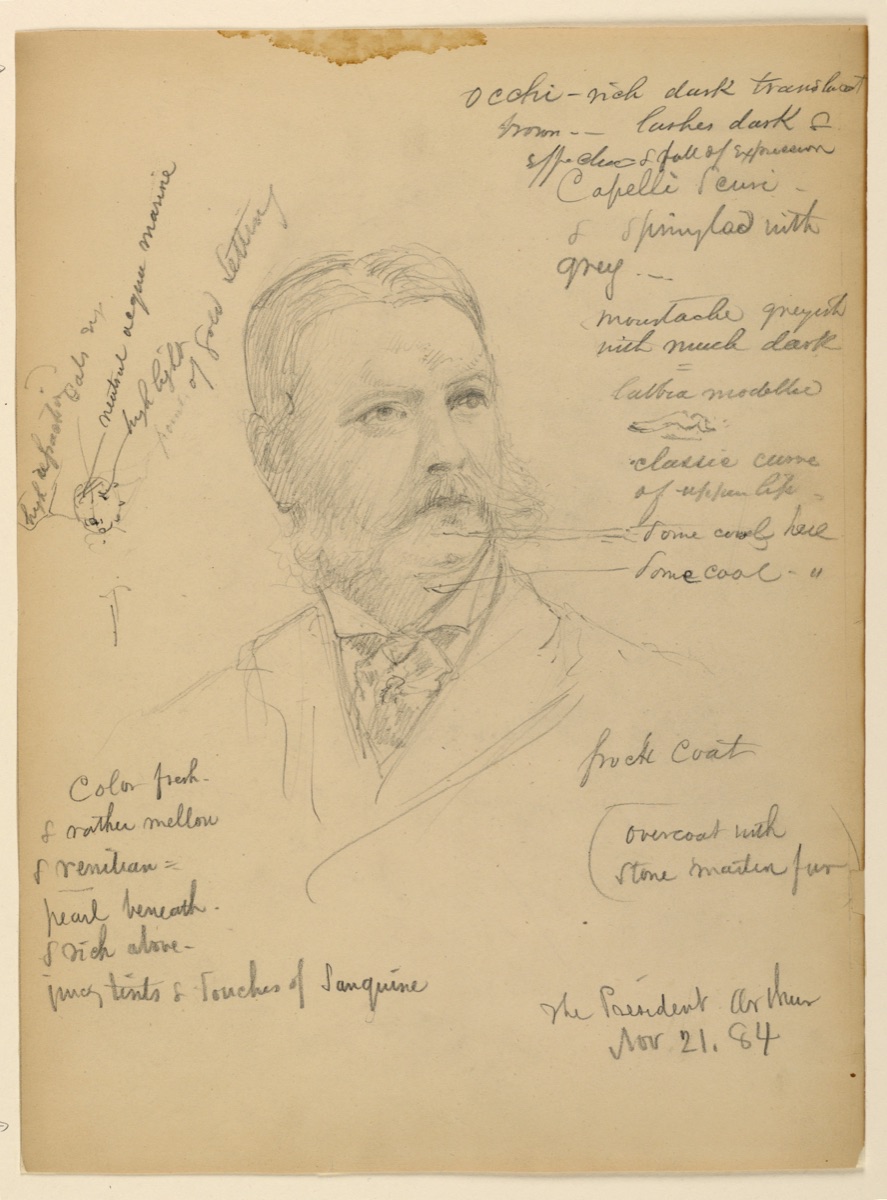 occhi - rich dark translucent
brown -- lashes dark &
effective & full of expression
Capelli scuri -
& sprinkled with
grey --
moustache greyish
with much dark
labbra modelle
classic curve
of upper lip
Some cool here
Some cool - "
high
Oats
neutral acqua marine
high light
point of Gold Setting
frock coat
overcoat with
stone marten fur
Color fresh -
& rather mellow
& venitian =
pearl beneath -
& rich above -
juicy tints & touches of Sanguine
The President Arthur
Nov 21. 84